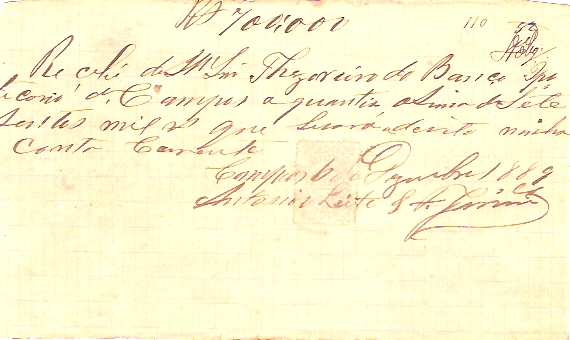 Rs 700,000
110
Recebi do Illm Snr Thezoreiro do Banco Ypo
tecario de Campos a quantia asima de Sete
sentos mil rs que levará a devito minha
conta Corrente
Campos 6 de Dezembro 1889
Antonio Leite &